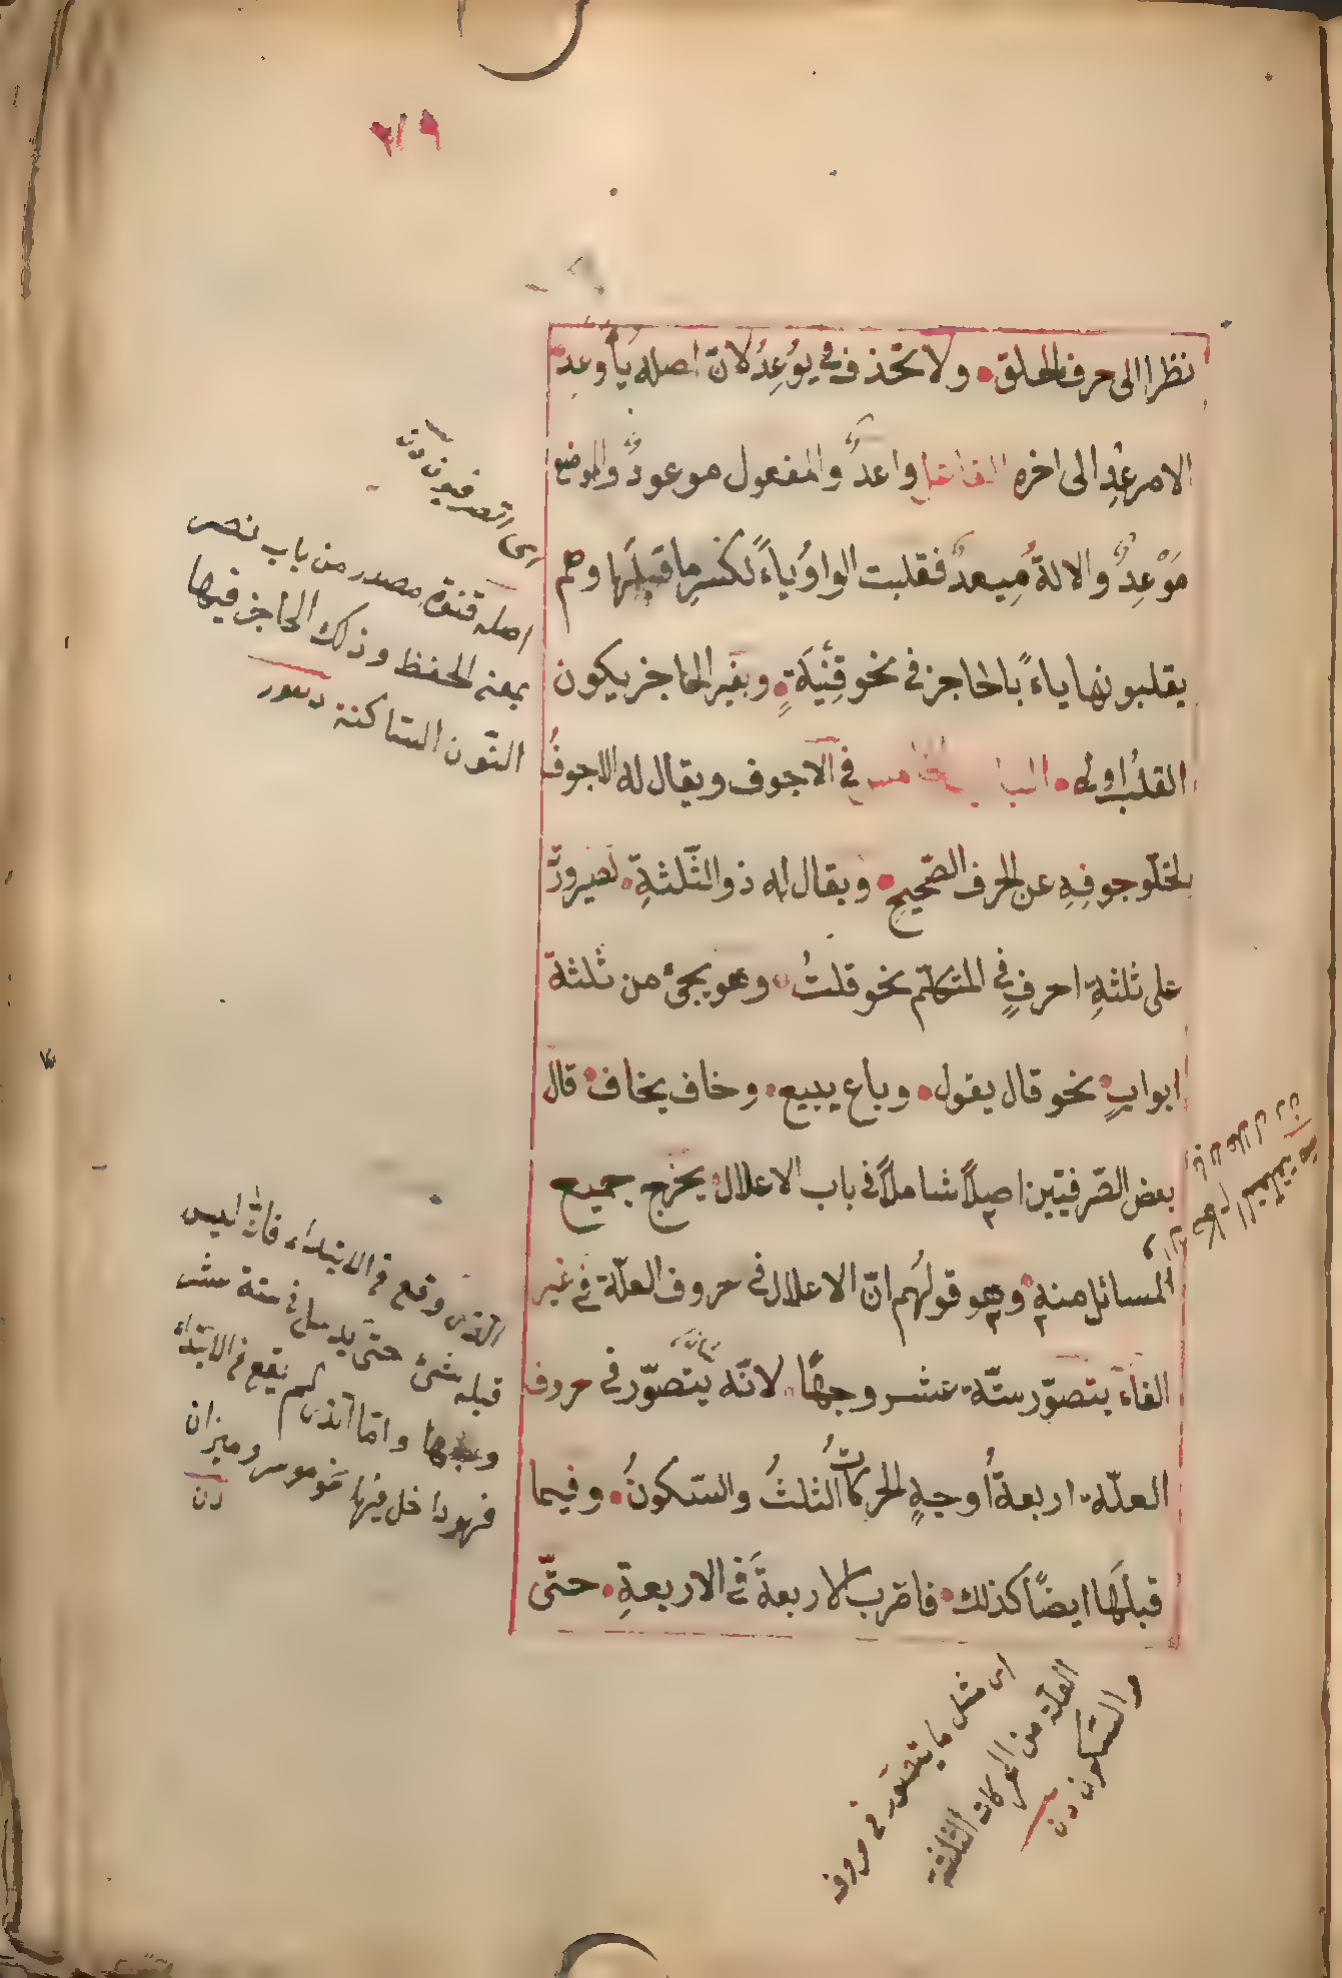 ٢١٩
نظرا الى حرف الحلق ولا تحذف فى يُوعِدُ لانّ اصله يأوعِدُ
الامر عِدْ الى اخره الفاعل واعدٌ والمفعول موعودٌ والموضع
مَوْعِدٌ والالةُ مِيعدٌ فقلبت الواوُ ياءً لكسرِ ما قبلَها وهم
يقلبونها ياءً بالحاجز فى نحو قِنْيَةٍ وبغير الحاجز يكون
القلبُ اولى الباب الخامس فى الاجوف ويقال له الاجوفُ
لخلّو جوفِهِ عن الحرف الصّحيحِ ويقال له ذو الثّلثةِ لصيرورته
على ثلثةِ احرفٍ فى المتكلّم نحو قلتُ وهو يجئ من ثلثة
ابوابٍ نحو قال يقول وباع يبيع وخاف يخاف قال
بعض الصّرفيّين اصلاً شاملاً فى باب الاعلال يخرج جميع
المسائل منه وهو قولُهم انّ الاعلال فى حروف العلّة فى غير
الفاء يتصوّر ستّة عشر وجهًا لانّه يتصوّر فى حروف
العلّة اربعةُ اوجهٍ الحركاتُ الثلثُ والسّكونُ وفيما
قبلَها ايضًا كذلك فاضرب الاربعةَ فى الاربعةِ حتّى
اى الصرفيون دن
اصله قنوة مصدر من باب نصر
بمعنى الحفظ وذلك الحاجز فيها
النّون السّاكنة
الّذى وقع فى الابتداء فانّه ليس
قبله شئ حتى يدخل فى ستة عشر
وجها وامّا الذى لم يقع فى الابتداء
فهو داخل فيها نحو موسر وميزان
دن
اى مثل ما يتصوّر فى حروف
العلّة من الحركات الثلثة
والسّكون دن